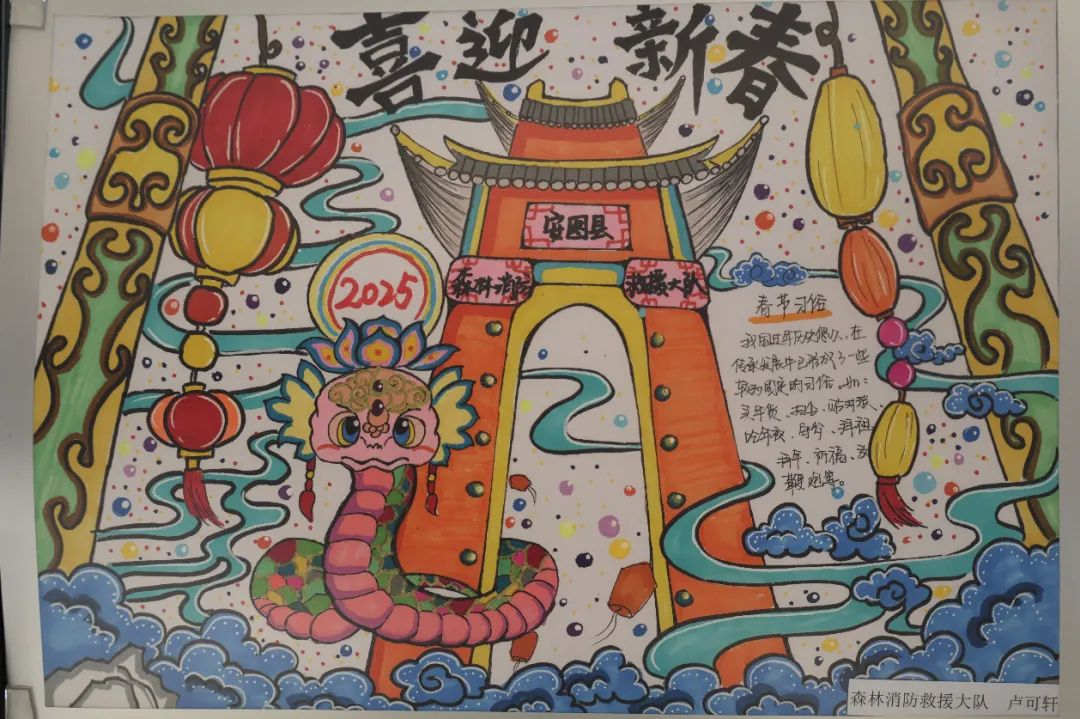 喜迎新春
安图县
森林消防
救援大队
2025
春节习俗
我国过年历史悠久,在
传承发展中已形成了一些
较为固定的习俗,如:
买年货、扫尘、贴对联、
吃年夜、守岁、拜祖、
拜年、祈福、放
鞭炮等。
森林消防救援大队 卢可轩